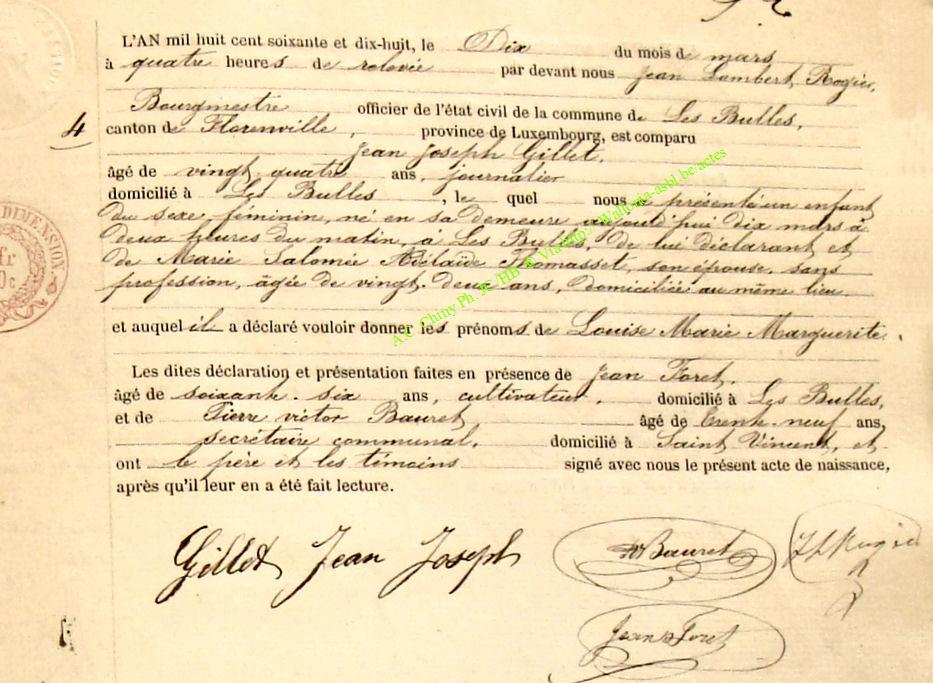 L'AN mil huit cent soixante et dix-huit, le Dix du mois de mars
à quatre heures de relevée par devant nous Jean Lambert Rogier,
Bourgmestre officier de l'état civil de la commune de Les Bulles,
4
canton de Florenville, province de Luxembourg, est comparu
Jean Joseph Gillet,
âgé de vingt-quatre ans, journalier
domicilié à Les Bulles, le quel nous a présenté un enfant
du sexe féminin, né en sa demeure aujourd'hui dix mars à
deux heures du matin, à Les Bulles, de lui déclarant et
de Marie Salomée Adélaïde Thomasset, son épouse, sans
profession, âgée de vingt-deux ans, domiciliée au même lieu
et auquel il a déclaré vouloir donner les prénoms de Louise Marie Marguerite.
Les dites déclaration et présentation faites en présence de Jean Foret,
âgé de soixante-six ans, cultivateur, domicilié à Les Bulles,
et de Pierre victor Bauret âgé de trente-neuf ans,
secrétaire communal, domicilié à Saint Vincent, et
ont le père et les témoins signé avec nous le présent acte de naissance,
après qu'il leur en a été fait lecture.
Gillet Jean Joseph
Bauret
Jean Foret
DIMENSION.